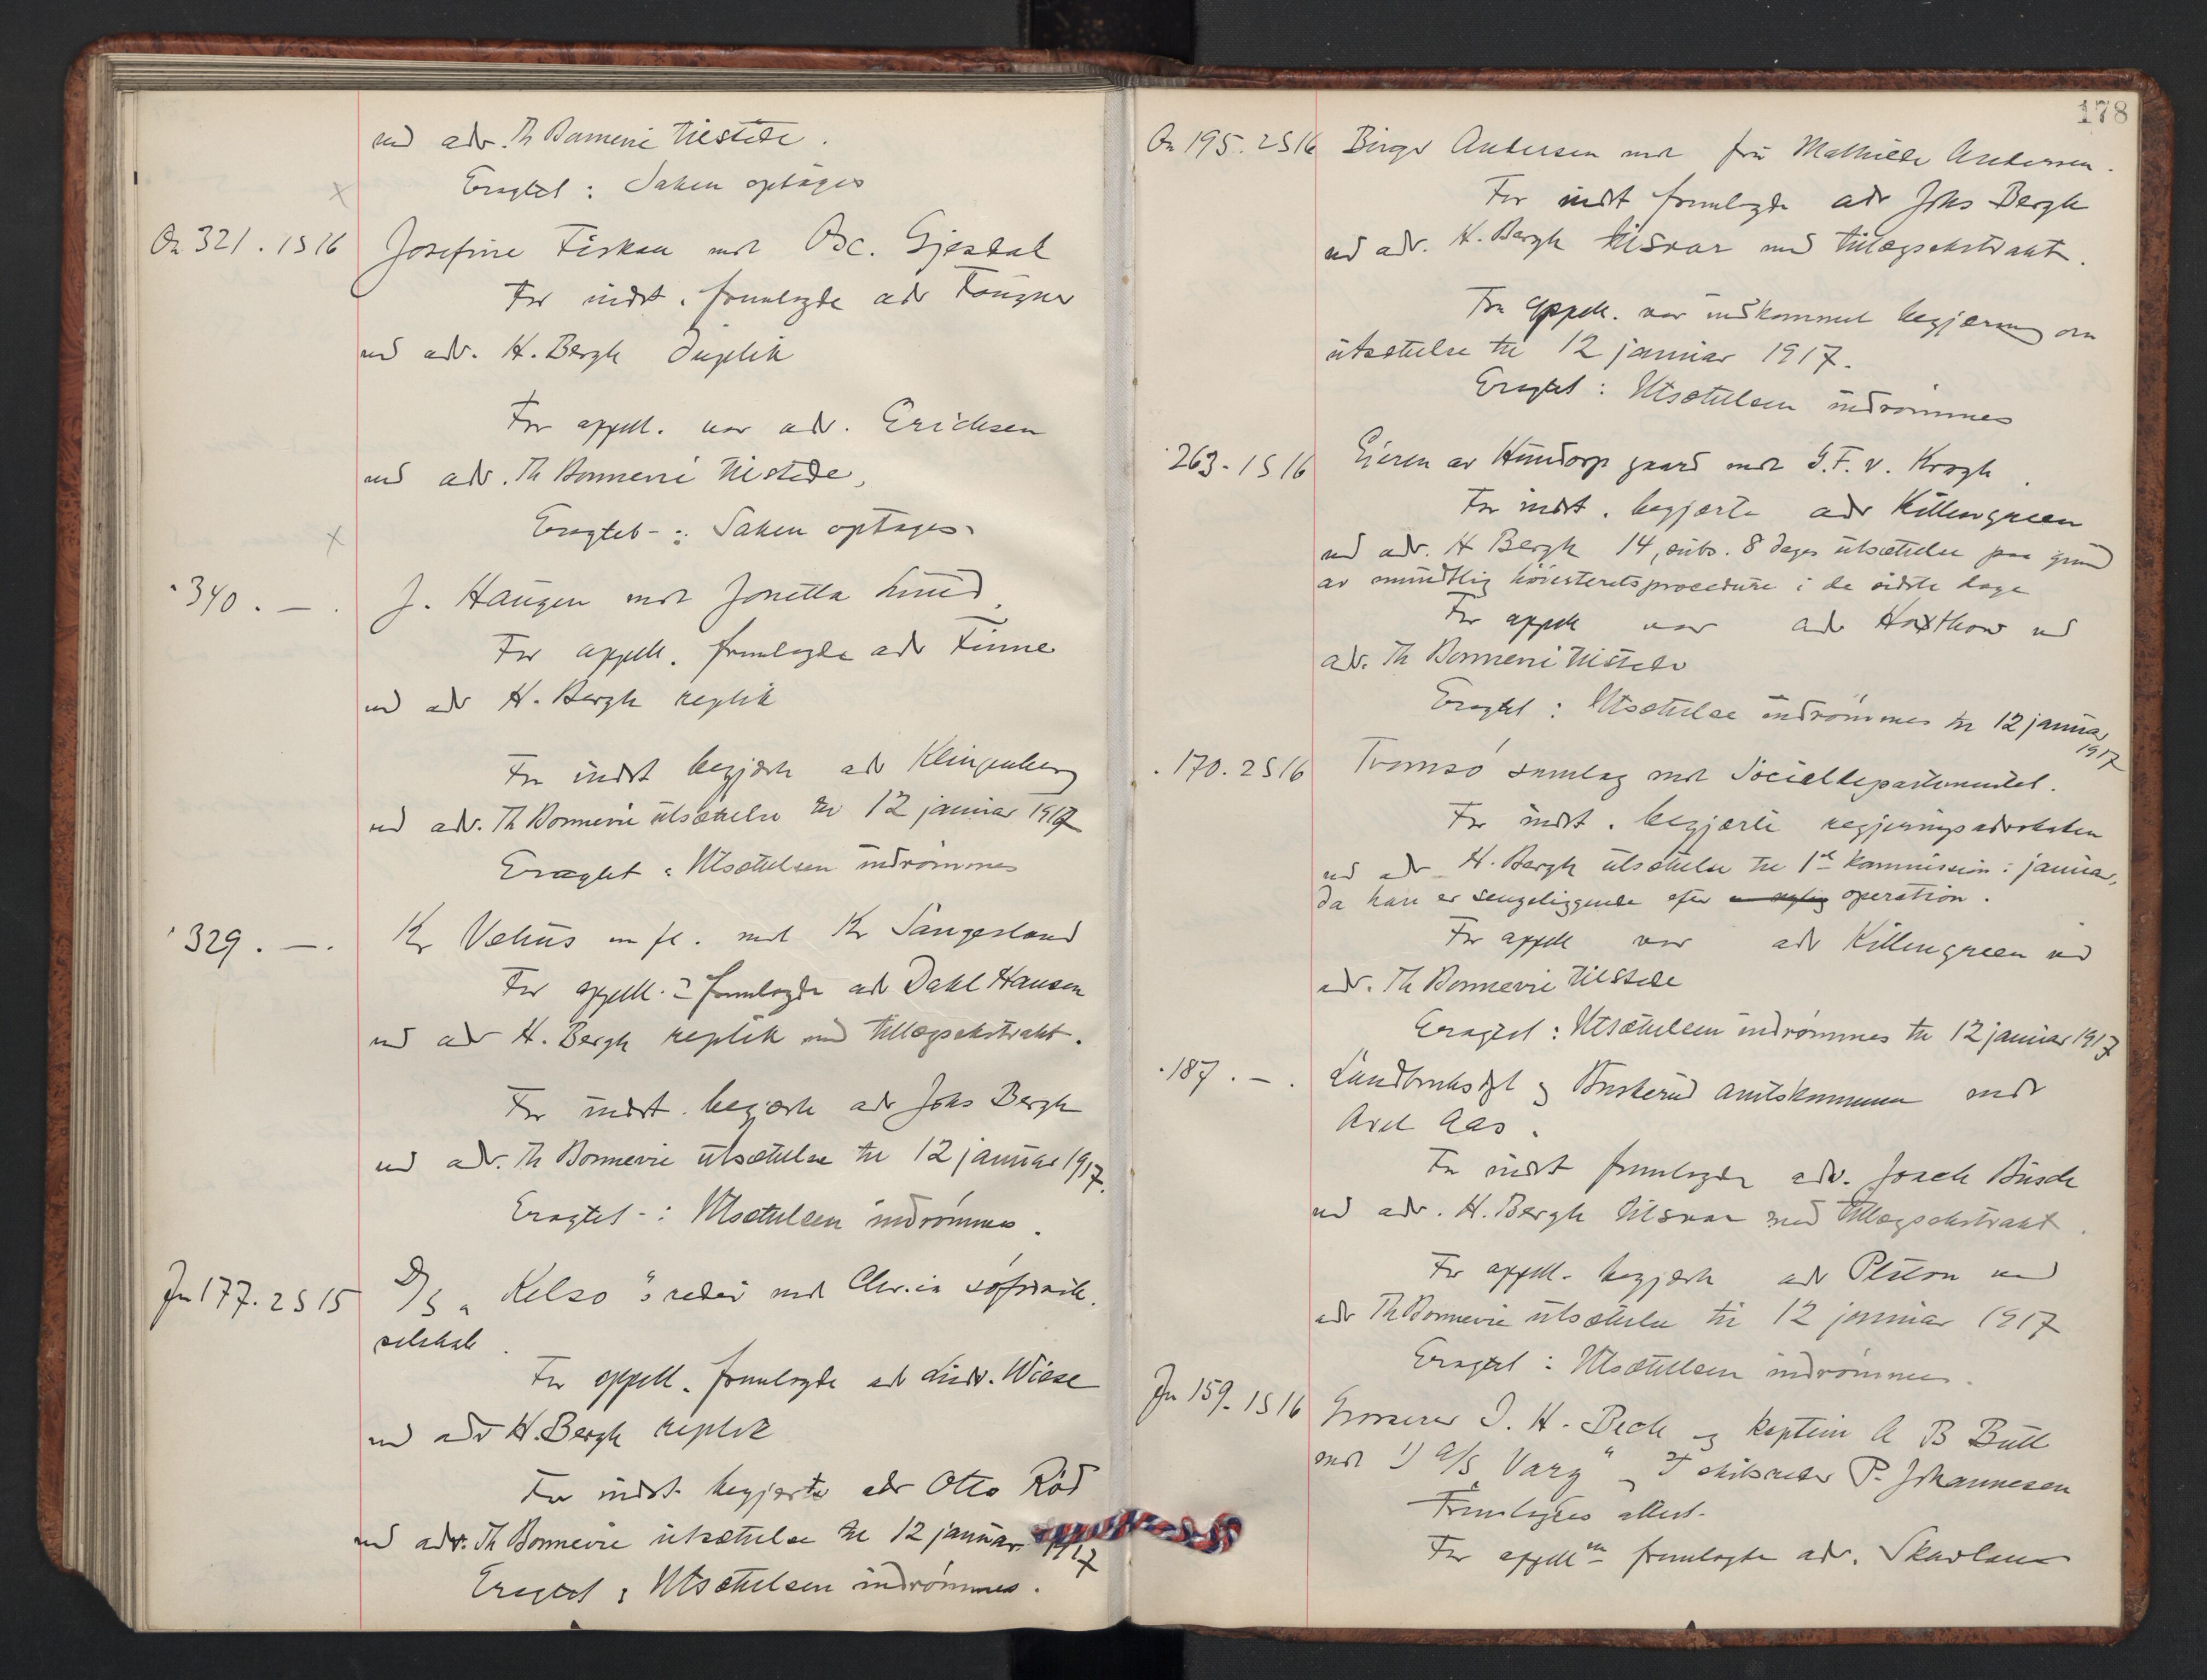 ved adv. Th Bonnevie tilstede.
Eragtet: Saken optages
On 321. 1S 16 Josefine Fiskaa mot Osc. Gjesdal
For indst. fremlagde adv Fougner
ved adv. H. Bergh duplik
For appell. var adv. Erichsen
ved adv. Th Bonnevie tilstede,
Eragtet: Saken optages
340. — . J. Haugen mot Jonetta Lund.
For appell. fremlagde adv Finne
ved adv H. Bergh replik
For indst begjærte adv Klingenberg
ved adv. Th Bonnevie utsættelse til 12 januar 1917
Eragtet: Utsættelsen indrømmes
329. — . Kr Vehus m fl. mot Kr Sangesland
For appell. fremlagde adv Dahl Hansen
ved adv H. Bergh replik med tillægsekstrakt.
For indst. begjærte adv Johs Bergh
ved adv. Th Bonnevie utsættelse til 12 januar 1917.
Eragtet: Utsættelsen indrømmes.
Jn 177. 2S 15 D/S "Kelso"s rederi mot Chr.ia søforsik.
selskab.
For appell. fremlagde adv Ludv. Wiese
ved adv H. Bergh replik
For indst. begjærte adv Otto Rød
ved adv. Th Bonnevie utsættelse til 12 januar 1917
Eragtet: Utsættelsen indrømmes.
178
On 195. 2S16 Birger Andersen mot fru Mathilde Andersen.
For indst fremlagde adv Johs Bergh
ved adv. H. Bergh tilsvar med tillægsekstrakt.
Fra appell. var indkommet begjæring om
utsættelse til 12 januar 1917.
Eragtet: Utsættelsen indrømmes
263. 1S 16 Eieren av Hundorp gaard mot G.F. v. Krogh.
For indst. begjærte adv Killengreen
ved adv. H Bergh 14, subs. 8 dages utsættelse paa grund
av mundtlig höiesteretsprocedure i de sidste dage
For appell var adv Haxthow ved
adv. Th Bonnevie tilstede
Eragtet: Utsættelse indrømmes til 12 januar
1917
170. 2S16 Tromsö samlag mot Socialdepartementet.
For indst. begjærte regjeringsadvokaten
ved adv H. Bergh utsættelse til 1ste kommission i januar,
da han er sengeliggende efter operation.
For appell var adv Killengreen ved
adv. Th Bonnevie tilstede
Eragtet: Utsættelsen indrømmes til 12 januar 1917
187. — . Landbruksdpt og Buskerud amtskommune mot
Axel Aas.
For indst fremlagde adv. Joach Busch
ved adv. H. Bergh tilsvar med tillægsekstrakt.
For appell. begjærte adv Platou ved
adv Th Bonnevie utsættelse til 12 januar 1917
Eragtet: Utsættelsen indrømmes.
Jn 159. 1S 16 Grosserer D. H. Bech og kaptein A B Bull
mot 1) A/S "Varg" og 2) skibsreder P. Johannesen
Fremlagdes attest.
For appellne fremlagde adv. Skavlan